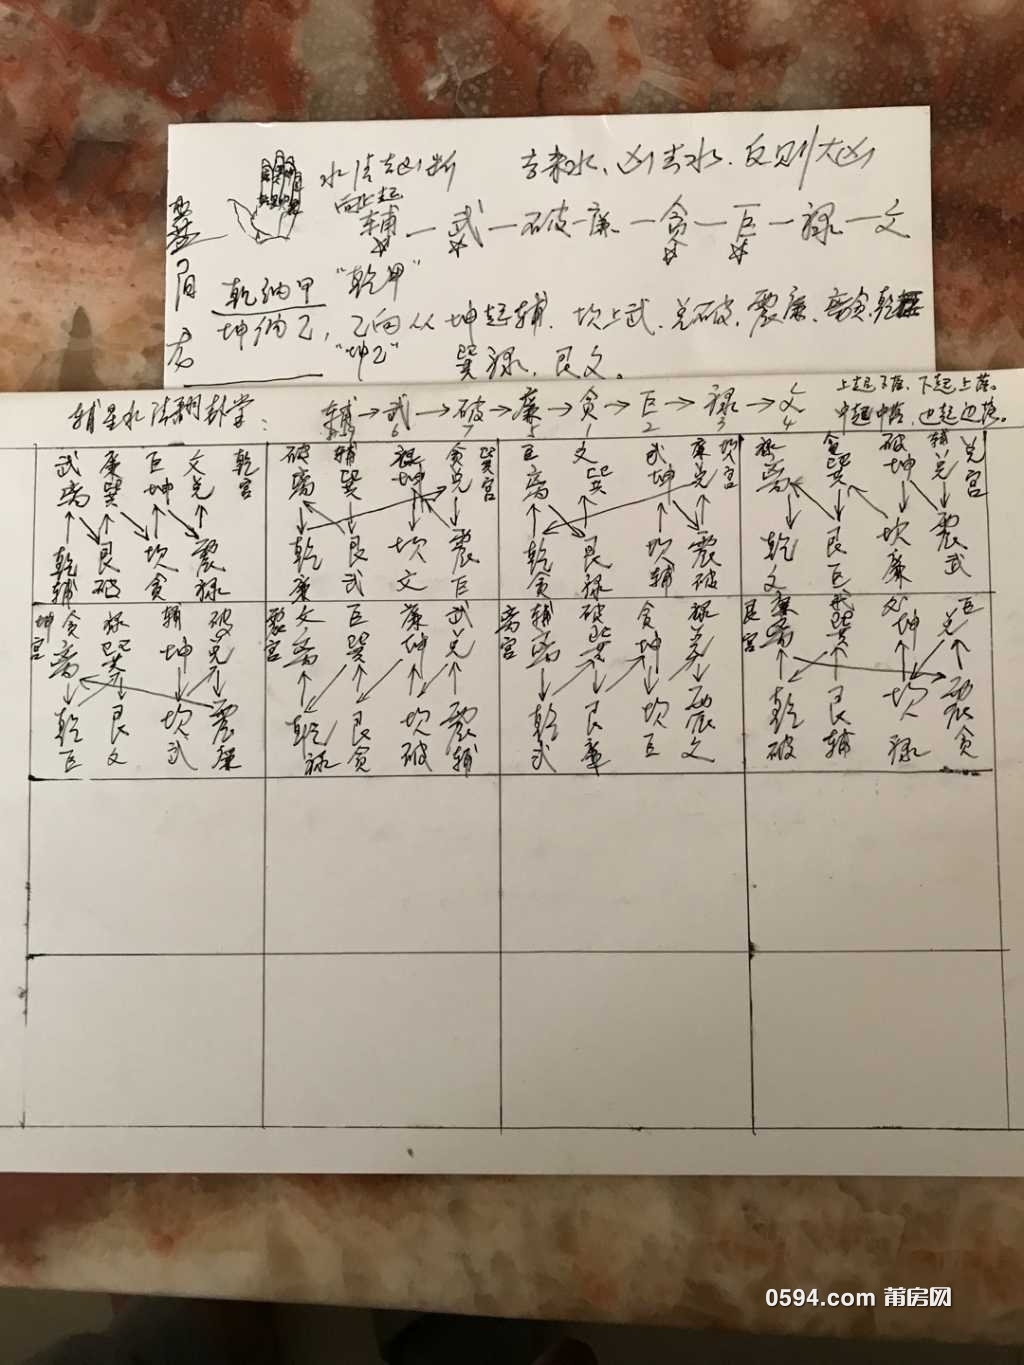 水法吉凶断 吉来水、凶去水、反则大凶
向上起
辅一武一破一廉一贪一巨一禄一文
乾纳甲 "乾甲"
坤纳乙，乙向从坤起辅、坎上武、兑破、震廉、离贪、乾巨
"坤乙" 巽禄、艮文。
辅星水法翻卦掌：
辅→武→破→廉→贪→巨→禄→文
6 7 5 1 2 3 4
上起下落、下起上落。
中起中落、边起边落。
武 廉 巨 文 乾宫
离 巽 坤 兑
乾 艮 坎 震
辅 破 贪 禄
破 辅 禄 贪 巽宫
离 巽 坤 兑
乾 艮 坎 震
廉 武 文 巨
巨 文 武 廉 坎宫
离 巽 坤 兑
乾 艮 坎 震
贪 禄 辅 破
禄 贪 破 辅 兑宫
离 巽 坤 兑
乾 艮 坎 震
文 巨 廉 武
坤宫 贪 禄 辅 破
离 巽 坤 兑
乾 艮 坎 震
巨 文 武 廉
震宫 文 巨 廉 武
离 巽 坤 兑
乾 艮 坎 震
禄 贪 破 辅
离宫 辅 破 贪 禄
离 巽 坤 兑
乾 艮 坎 震
武 廉 巨 文
艮宫 廉 武 文 巨
离 巽 坤 兑
乾 艮 坎 震
破 辅 禄 贪
0594.com 莆房网